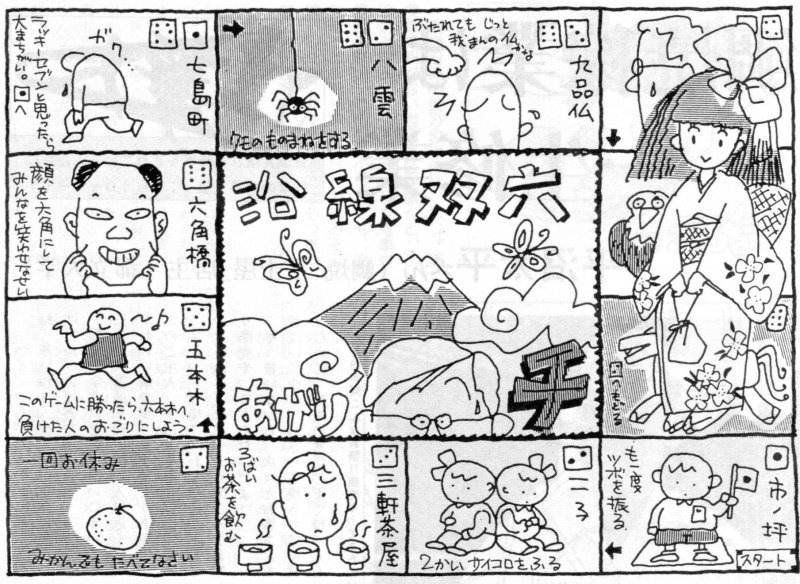 七島町
ガク…
ラッキーセブンと思ったら
大まちがい。 へ
八雲
クモのものまねをする
九品仏
ぶたれても じっと
我まんの仏かな
六角橋
顔を六角にして
みんなを笑わせなさい
沿線双六
あがり
チ
五本木
このゲームに勝ったら、六本木へ
負けた人のおごりにしよう。
へもどる
一回お休み
みかんでも たべてなさい
三軒茶屋
3ばい
お茶を飲む
二子
2かいサイコロをふる
市ノ坪
も一度
ツボを振る
スタート